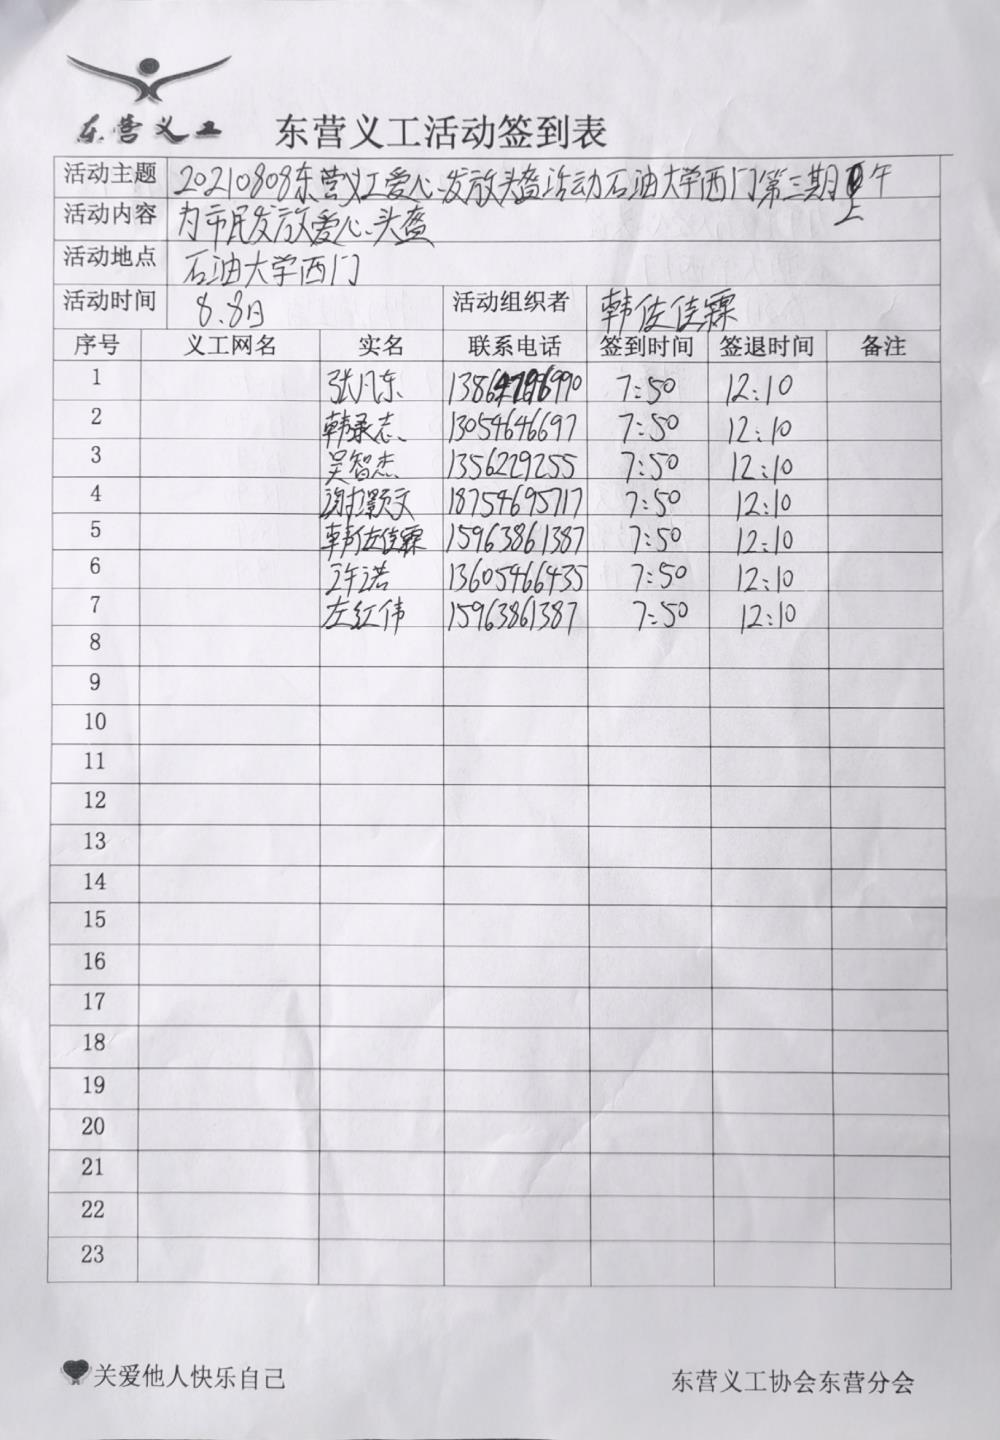 东营义工 东营义工活动签到表
活动主题 20210808东营义工爱心发放头盔活动石油大学西门第三期上午
活动内容 为市民发放爱心头盔
活动地点 石油大学西门
活动时间 8.8日 活动组织者 韩佐佳霖
序号 义工网名 实名 联系电话 签到时间 签退时间 备注
1 张凡东 7:50 12:10
2 韩承志 13054646697 7:50 12:10
3 吴智杰 1356229255 7:50 12:10
4 谢颢文 18754695717 7:50 12:10
5 韩佐佳霖 15963861387 7:50 12:10
6 许诺 13605466435 7:50 12:10
7 左红伟 15963861387 7:50 12:10
8
9
10
11
12
13
14
15
16
17
18
19
20
21
22
23
关爱他人快乐自己 东营义工协会东营分会